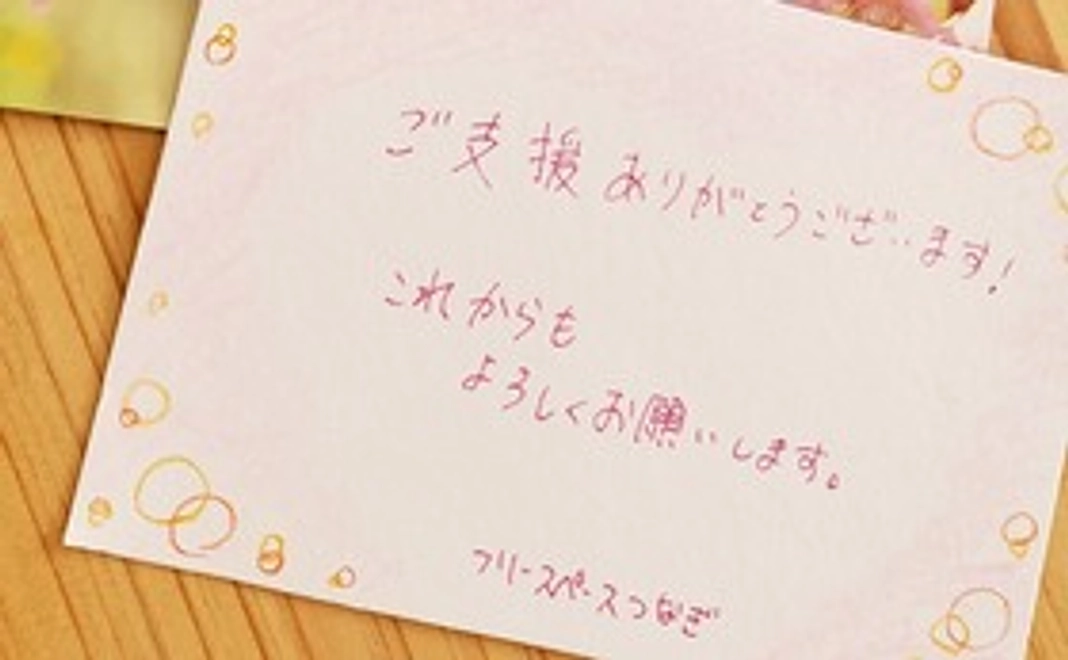 ご支援ありがとうございます!
これからも
よろしくお願いします。
フリースペースつなぎ